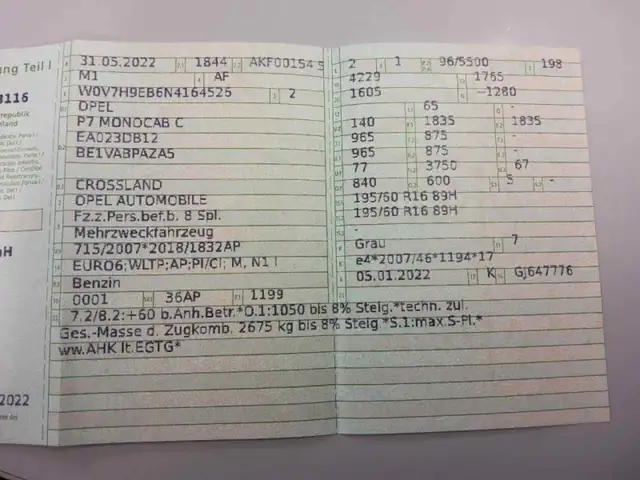 ung Teil I
31.05.2022 1844 AKF00154 5
M1 AF
W0V7H9EB6N4164526 2
OPEL
P7 MONOCAB C
EA023DB12
BE1VABPAZA5
CROSSLAND
OPEL AUTOMOBILE
Fz.z.Pers.bef.b. 8 Spl.
Mehrzweckfahrzeug
715/2007*2018/1832AP
EURO6;WLTP;AP;PI/CI; M, N1 I
Benzin
0001 36AP 1199
2 1 96/5500 198
4229 1765
1605 —1280
65 -
140 1835 1835
965 875 -
965 875 -
77 3750 67
840 600 5 -
195/60 R16 89H
195/60 R16 89H
-
Grau 7
e4*2007/46*1194*17
05.01.2022 K GJ647776
7.2/8.2:+60 b.Anh.Betr.*O.1:1050 bis 8% Steig.*techn. zul.
Ges.-Masse d. Zugkomb. 2675 kg bis 8% Steig *S.1:max.S-Pl.*
ww.AHK lt.EGTG*
8116
republik
2022